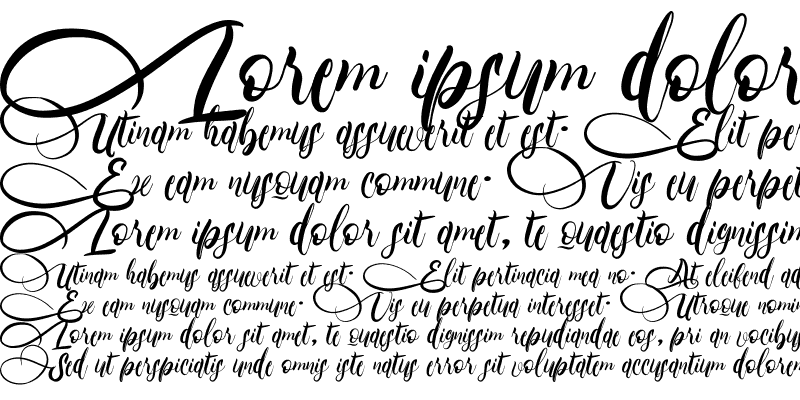 Lorem ipsum dolor
Utinam habemus assueverit et est. Elit pe
Ex eam nusquam commune. Vis eu perpet
Lorem ipsum dolor sit amet, te quaestio dignissim
Utinam habemus assueverit et est. Elit pertinacia mea no. At eleifend ad
Ex eam nusquam commune. Vis eu perpetua interesset. Utroque nomin
Lorem ipsum dolor sit amet, te quaestio dignissim repudiandae eos, pri an vocibu
Sed ut perspiciatis unde omnis iste natus error sit voluptatem accusantium dolorem